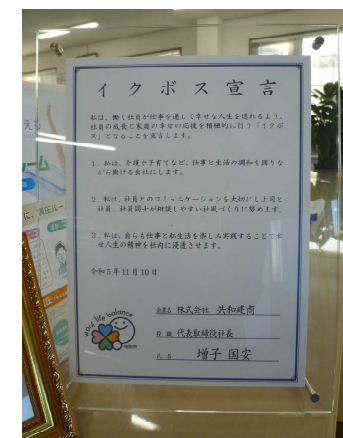 イクボス宣言
私は、働く社員が仕事を通して幸せな人生を送れるよう、
社員の成長と家庭の幸せの応援を積極的に行う「イクボ
ス」となることを宣言します。
1. 私は、介護や子育てなど、仕事と生活の調和を図りな
がら働ける会社にします。
2. 私は、社員とのコミュニケーションを大切にし上司と
社員、社員同士が相談しやすい社風づくりに努めます。
3. 私は、自らも仕事と私生活を楽しみ実践することで幸
せ人生の精神を社内に浸透させます。
令和5年11月10日
企業名 株式会社 共和建商
役職 代表取締役社長
氏名 増子 国安
work life balance